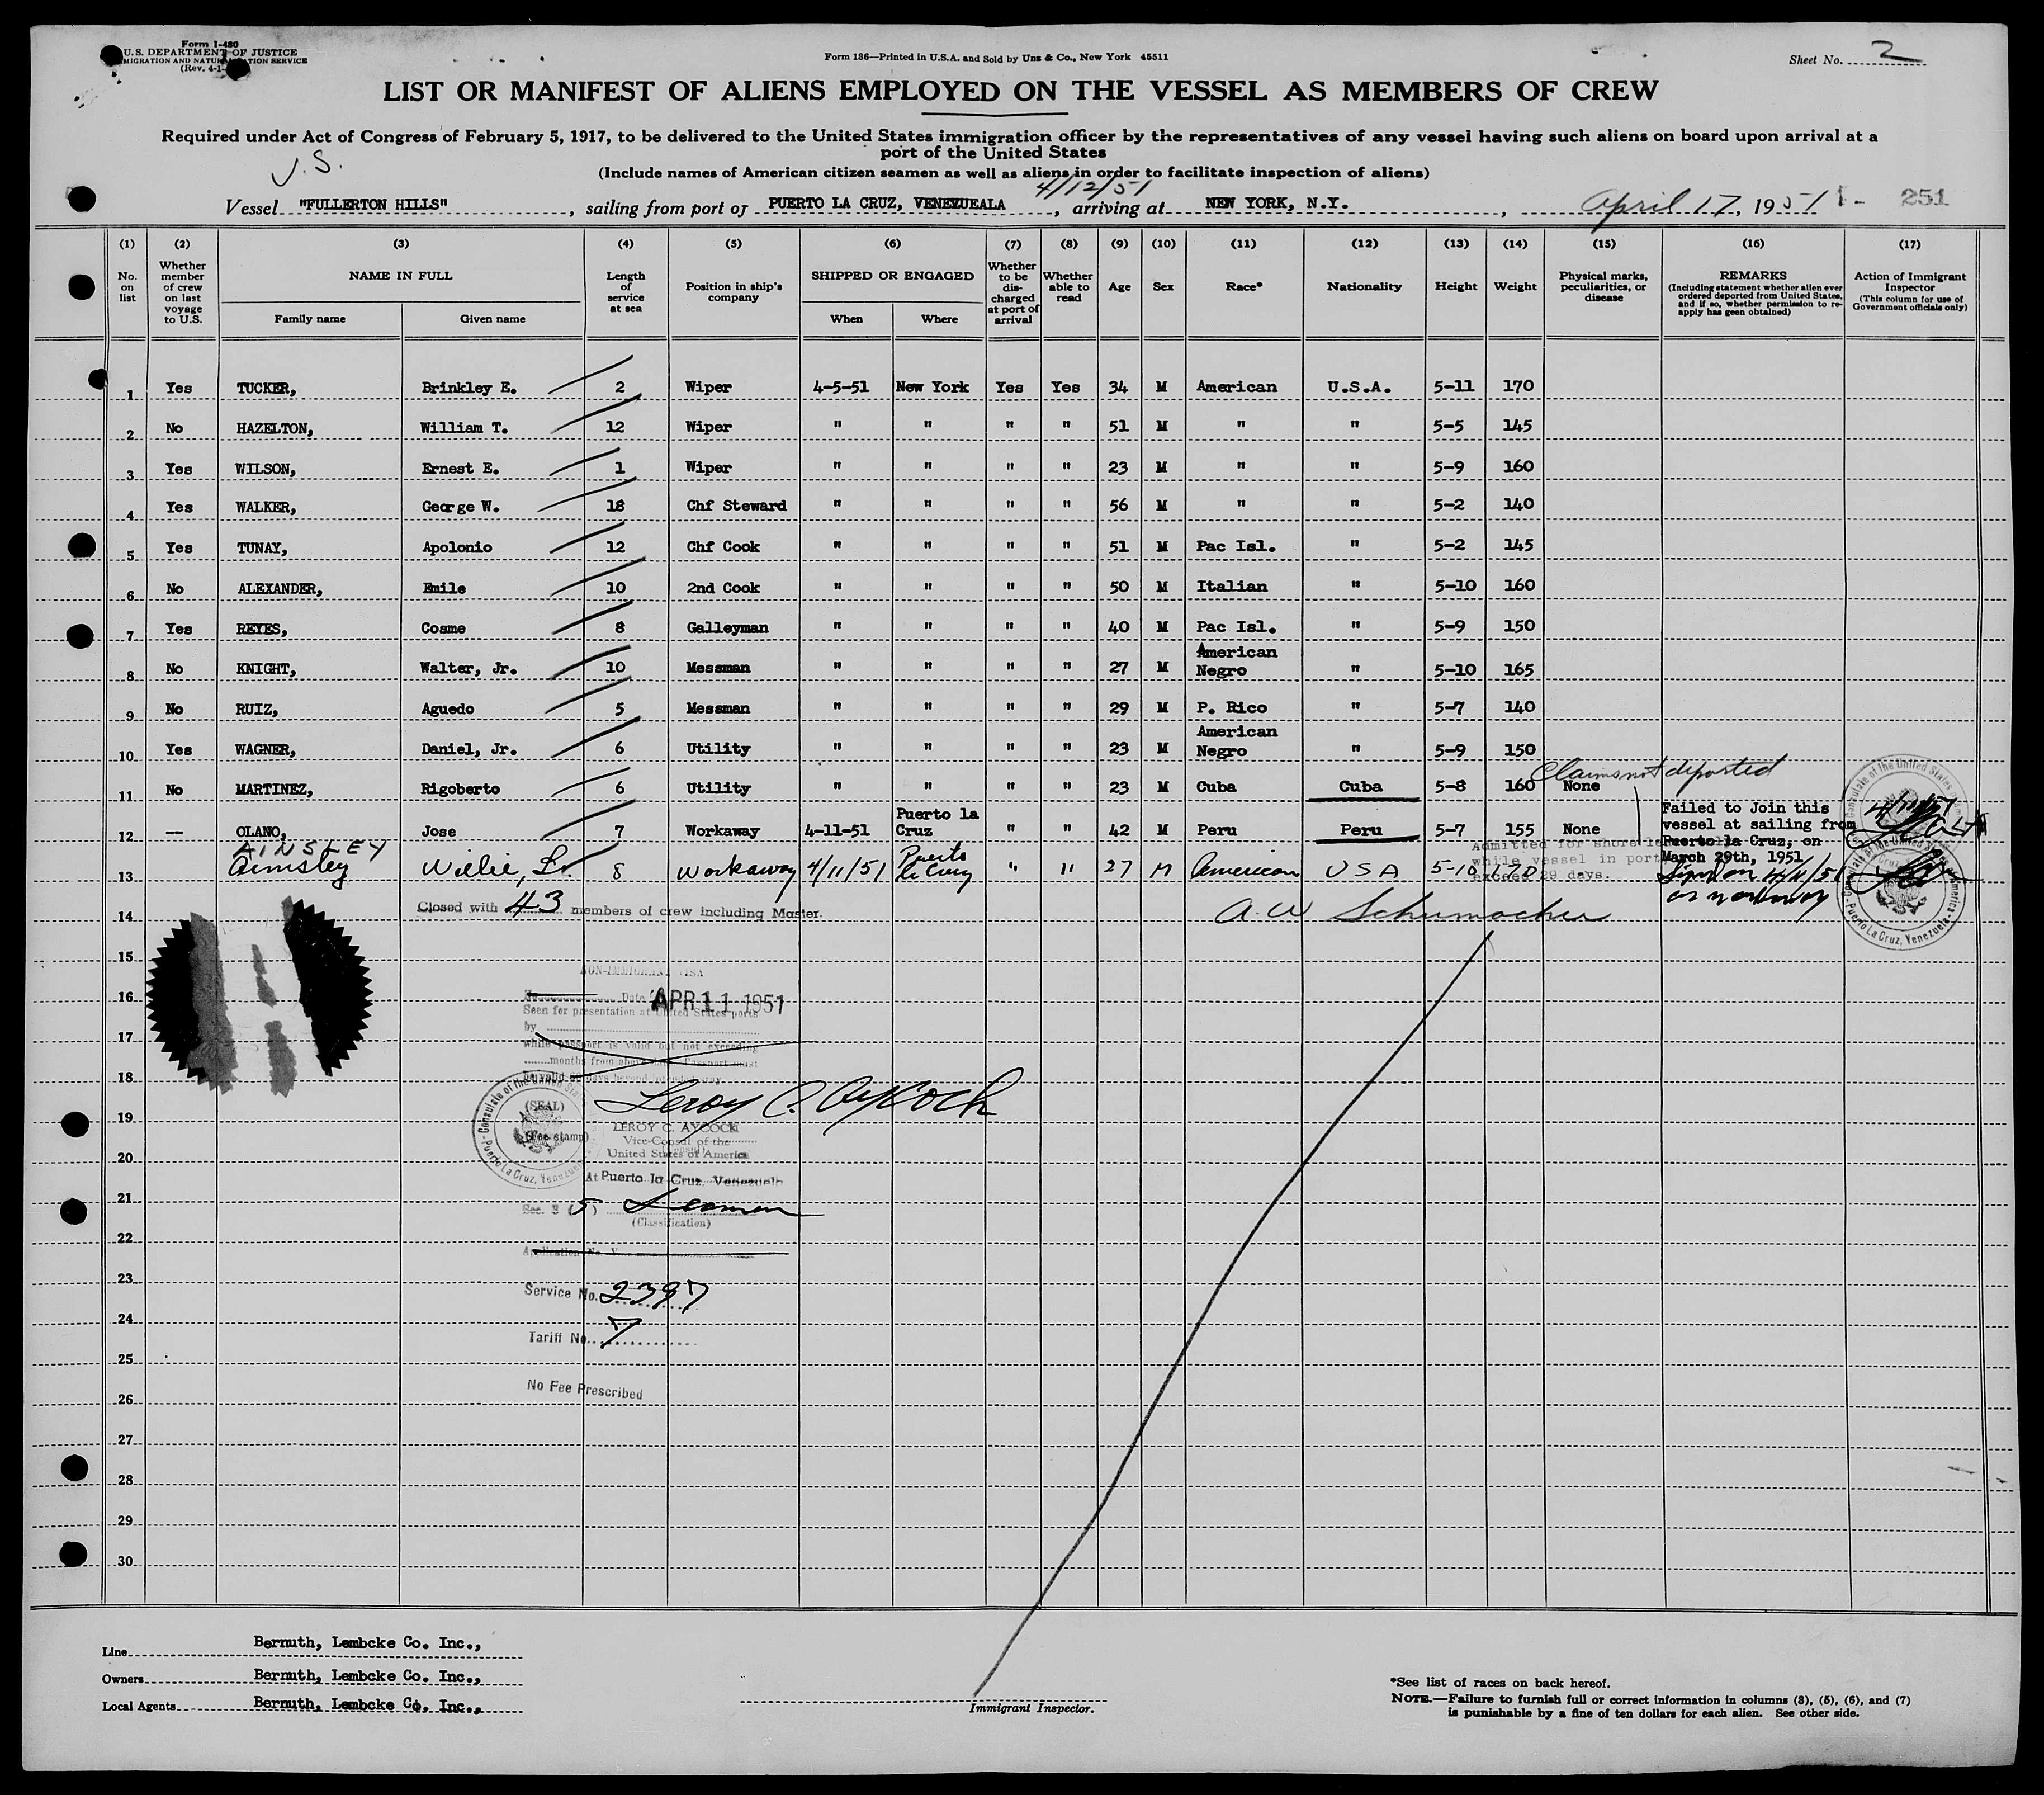 Form I-480
U.S. DEPARTMENT OF JUSTICE
IMMIGRATION AND NATURALIZATION SERVICE
(Rev. 4-1-
Form 136—Printed in U.S.A. and Sold by Unz & Co., New York 45511
Sheet No. 2
LIST OR MANIFEST OF ALIENS EMPLOYED ON THE VESSEL AS MEMBERS OF CREW
Required under Act of Congress of February 5, 1917, to be delivered to the United States immigration officer by the representatives of any vessel having such aliens on board upon arrival at a
port of the United States
(Include names of American citizen seamen as well as aliens in order to facilitate inspection of aliens)
4/12/51
Vessel "FULLERTON HILLS", sailing from port of PUERTO LA CRUZ, VENEZUEALA, arriving at NEW YORK, N.Y., April 17, 1951 - 251
(1) (2) (3) (4) (5) (6) (7) (8) (9) (10) (11) (12) (13) (14) (15) (16) (17)
No. on list
Whether member of crew on last voyage to U.S.
NAME IN FULL
Family name
Given name
Length of service at sea
Position in ship's company
SHIPPED OR ENGAGED
When
Where
Whether to be discharged at port of arrival
Whether able to read
Age
Sex
Race*
Nationality
Height
Weight
Physical marks, peculiarities, or disease
REMARKS
(Including statement whether alien ever ordered deported from United States, and if so, whether permission to re-apply has geen obtained)
Action of Immigrant Inspector
(This column for use of Government officials only)
1 Yes TUCKER, Brinkley E. 2 Wiper 4-5-51 New York Yes Yes 34 M American U.S.A. 5-11 170
2 No HAZELTON, William T. 12 Wiper " " " " 51 M " " 5-5 145
3 Yes WILSON, Ernest E. 1 Wiper " " " " 23 M " " 5-9 160
4 Yes WALKER, George W. 18 Chf Steward " " " " 56 M " " 5-2 140
5 Yes TUNAY, Apolonio 12 Chf Cook " " " " 51 M Pac Isl. " 5-2 145
6 No ALEXANDER, Emile 10 2nd Cook " " " " 50 M Italian " 5-10 160
7 Yes REYES, Cosme 8 Galleyman " " " " 40 M Pac Isl. " 5-9 150
8 No KNIGHT, Walter, Jr. 10 Messman " " " " 27 M American Negro " 5-10 165
9 No RUIZ, Aguedo 5 Messman " " " " 29 M P. Rico " 5-7 140
10 Yes WAGNER, Daniel, Jr. 6 Utility " " " " 23 M American Negro " 5-9 150
Claims not deported
11 No MARTINEZ, Rigoberto 6 Utility " " " " 23 M Cuba Cuba 5-8 160 None
12 — OLANO, Jose 7 Workaway 4-11-51 Puerto la Cruz " " 42 M Peru Peru 5-7 155 None
Failed to Join this
vessel at sailing from
Puerto la Cruz, on
March 29th, 1951
AINSLEY
13 Ainsley Willie, Lr 8 Workaway 4/11/51 Puerto la Cruz " " 27 M American USA 5-10 170
Signed on 4/11/51
as workaway
Admitted for shore
while vessel in port
exceed 29 days.
14 Closed with 43 members of crew including Master.
A. W Schumacher
Consulate of the United States of America
Puerto La Cruz, Venezuela
15
NON-IMMIGRANT VISA
16 Date APR 11 1951
Seen for presentation at United States ports
by
17
while passport is valid but not exceeding
months from above date. Passport must
be valid 60 days beyond intended stay.
18
Leroy C. Aycock
(SEAL)
19
LEROY C. AYCOCK
(Fee stamp)
Vice-Consul of the
20 United States of America
Consulate of the United States
Puerto La Cruz, Venezuela
At Puerto la Cruz, Venezuela
21 Sec. 3 (5) Seaman
(Classification)
22
Application No. V
23 Service No. 2397
24 Tariff No. 7
25
26 No Fee Prescribed
27
28
29
30
Line Bernuth, Lembcke Co. Inc.,
Owners Bernuth, Lembcke Co. Inc.,
Local Agents Bernuth, Lembcke Co. Inc.,
Immigrant Inspector.
*See list of races on back hereof.
NOTE.—Failure to furnish full or correct information in columns (3), (5), (6), and (7)
is punishable by a fine of ten dollars for each alien. See other side.